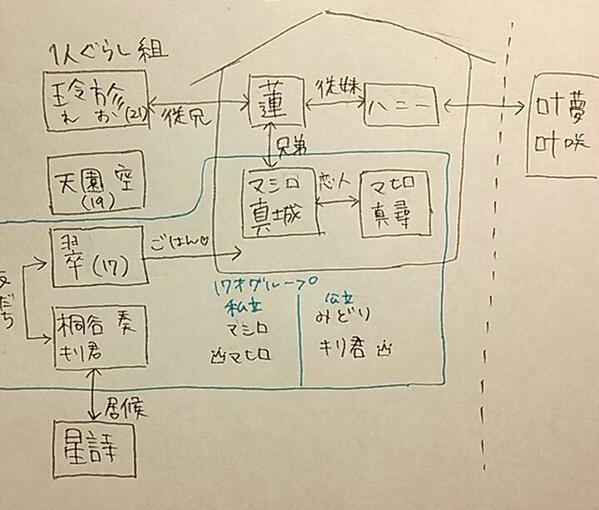 1人ぐらし組
れお(21)
従兄
蓮
従妹
ハニー
叶夢
叶咲
兄弟
天園 空
(19)
マシロ
真城
恋人
マヒロ
真尋
翠(17)
ごはん♡
だち
桐谷 奏
キリ君
居候
星詩
17才グループ
私立
マシロ
マヒロ
公立
みどり
キリ君